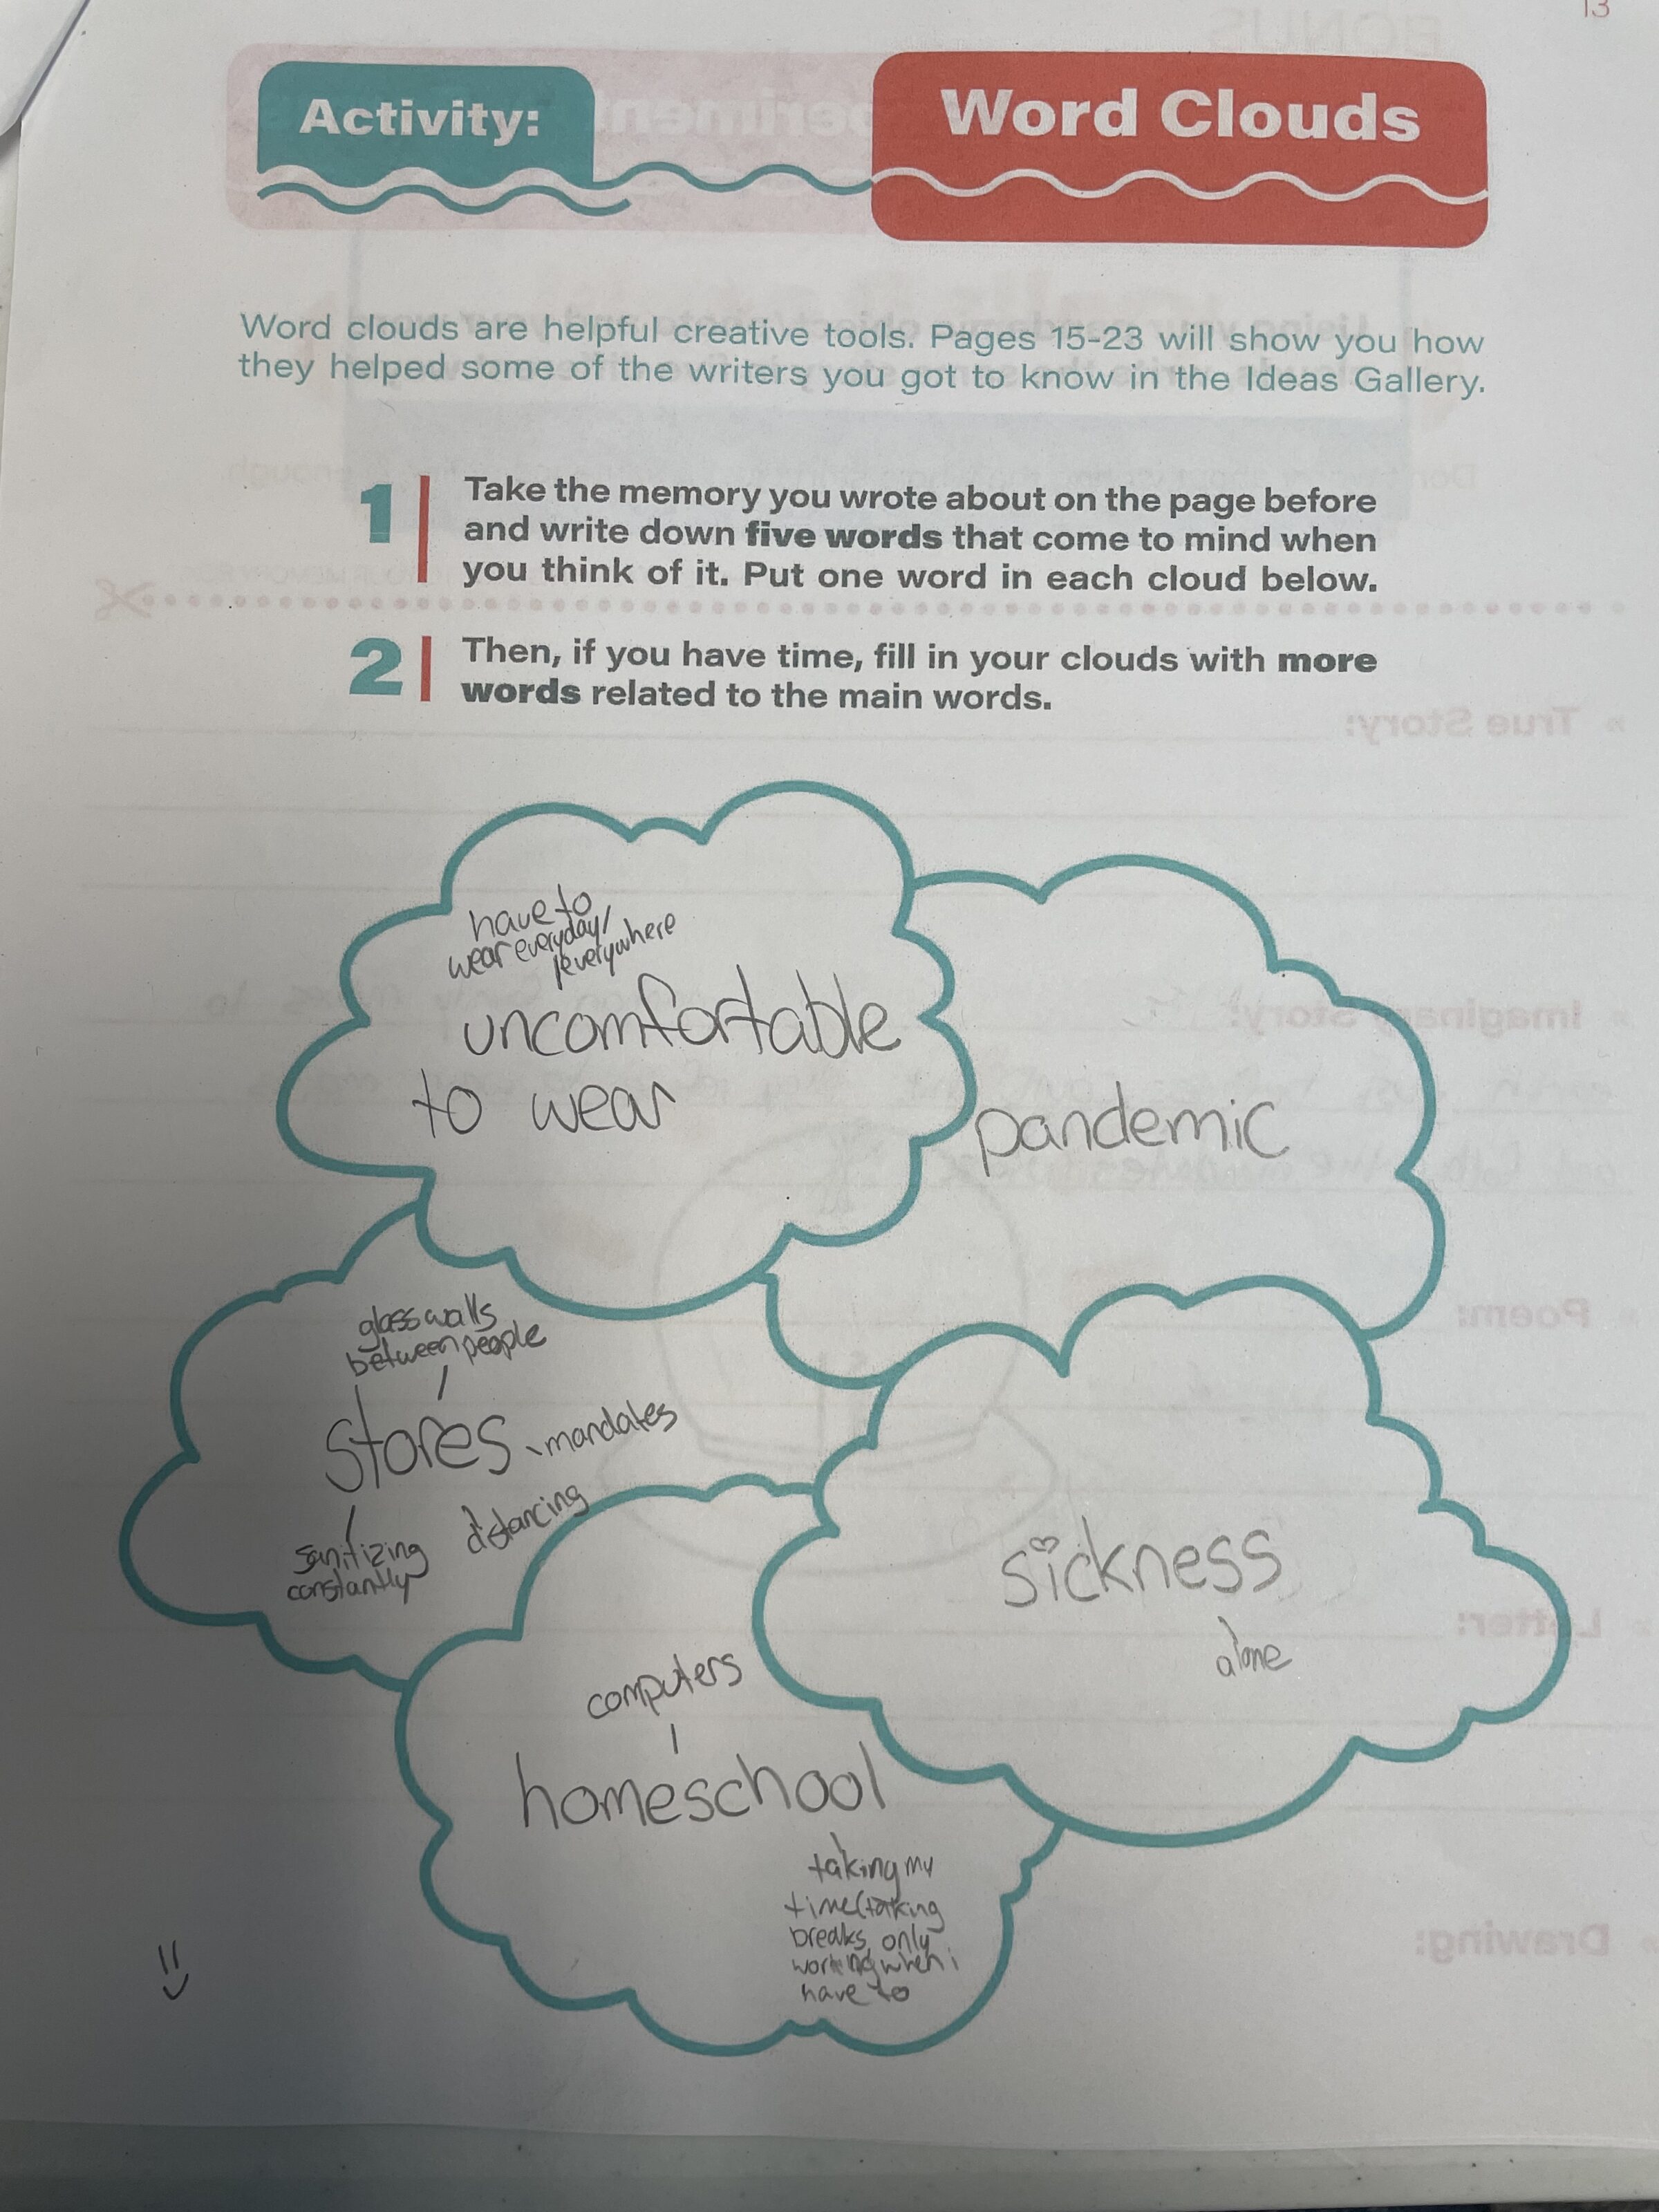 13
Activity:
Word Clouds
Word clouds are helpful creative tools. Pages 15-23 will show you how
they helped some of the writers you got to know in the Ideas Gallery.
1
Take the memory you wrote about on the page before
and write down five words that come to mind when
you think of it. Put one word in each cloud below.
2
Then, if you have time, fill in your clouds with more
words related to the main words.
have to
wear everyday/
everywhere
uncomfortable
to wear
pandemic
glass walls
between people
stores
mandates
distancing
sanitizing
constantly
sickness
alone
computers
homeschool
taking my
time(taking
breaks, only
working when i
have to
True Story:
Imaginary Story:
Poem:
Letter:
Drawing: